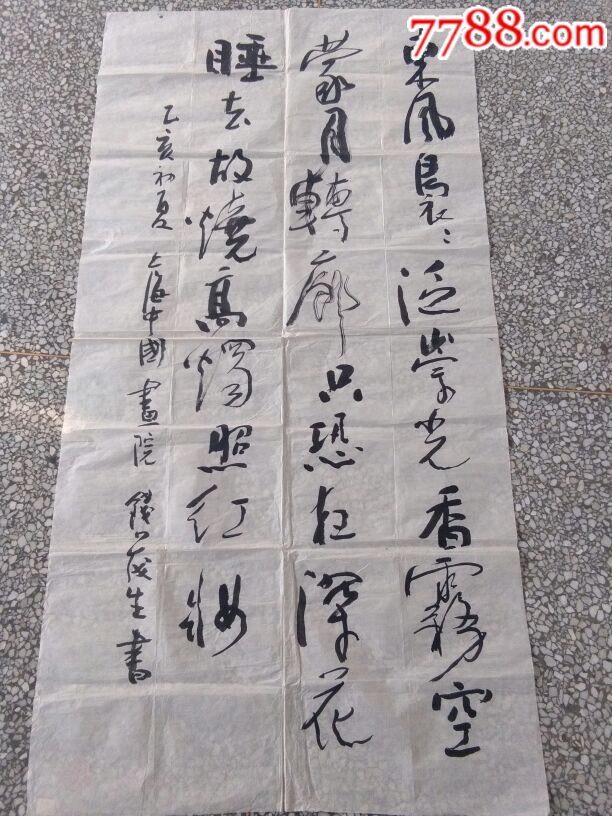 7788.com
東風裊々泛崇光香霧空
蒙月轉廊只恐夜深花
睡去故燒高燭照紅妝
乙亥初夏 上海中國畫院 錢茂生書